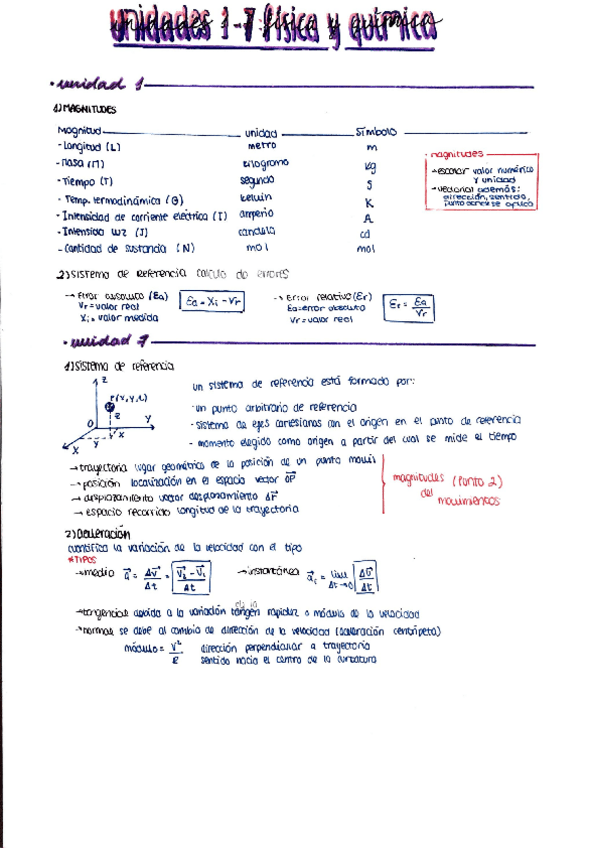 unidades 1-7 física y química
· unidad 1
1) MAGNITUDES
Magnitud unidad símbolo
- Longitud (L) metro m
- Masa (M) kilogramo kg
- Tiempo (T) segundo s
- Temp. termodinámica (θ) kelvin K
- Intensidad de corriente eléctrica (I) amperio A
- Intensida luz (J) candela cd
- Cantidad de sustancia (N) mol mol
magnitudes
→ escalar valor numérico
y unidad
→ vectorial además:
dirección, sentido,
punto donde se aplica
2) Sistema de referencia calculo de errores
→ Error absoluto (Ea) Ea = Xi - Vr
Vr = valor real
Xi = valor medida
→ Error relativo (Er) Er = Ea / Vr
Ea = error absoluto
Vr = valor real
· unidad 7
1) Sistema de referencia
z
P(x,y,z)
z
O
y
y
x
x
un sistema de referencia está formado por:
- un punto arbitrario de referencia
- sistema de ejes cartesianos con el origen en el punto de referencia
- momento elegido como origen a partir del cual se mide el tiempo
→ trayectoria lugar geométrico de la posición de un punto movil
→ posición localización en el espacio vector OP
→ desplazamiento vector desplazamiento Δr
→ espacio recorrido longitud de la trayectoria
magnitudes (punto 2)
del movimientos
2) Aceleración
cuantifica la variación de la velocidad con el tipo
*TIPOS
→ media a = Δv / Δt = V2 - V1 / Δt
→ instantánea ai = lim Δt→0 Δv / Δt
→ tangencial debida a la variación tangen rapidez o módulo de la velocidad
→ normal se debe al cambio de dirección de la velocidad (aceleración centrípeta)
módulo = V² / R dirección perpendicular a trayectoria
sentido hacia el centro de la curvatura